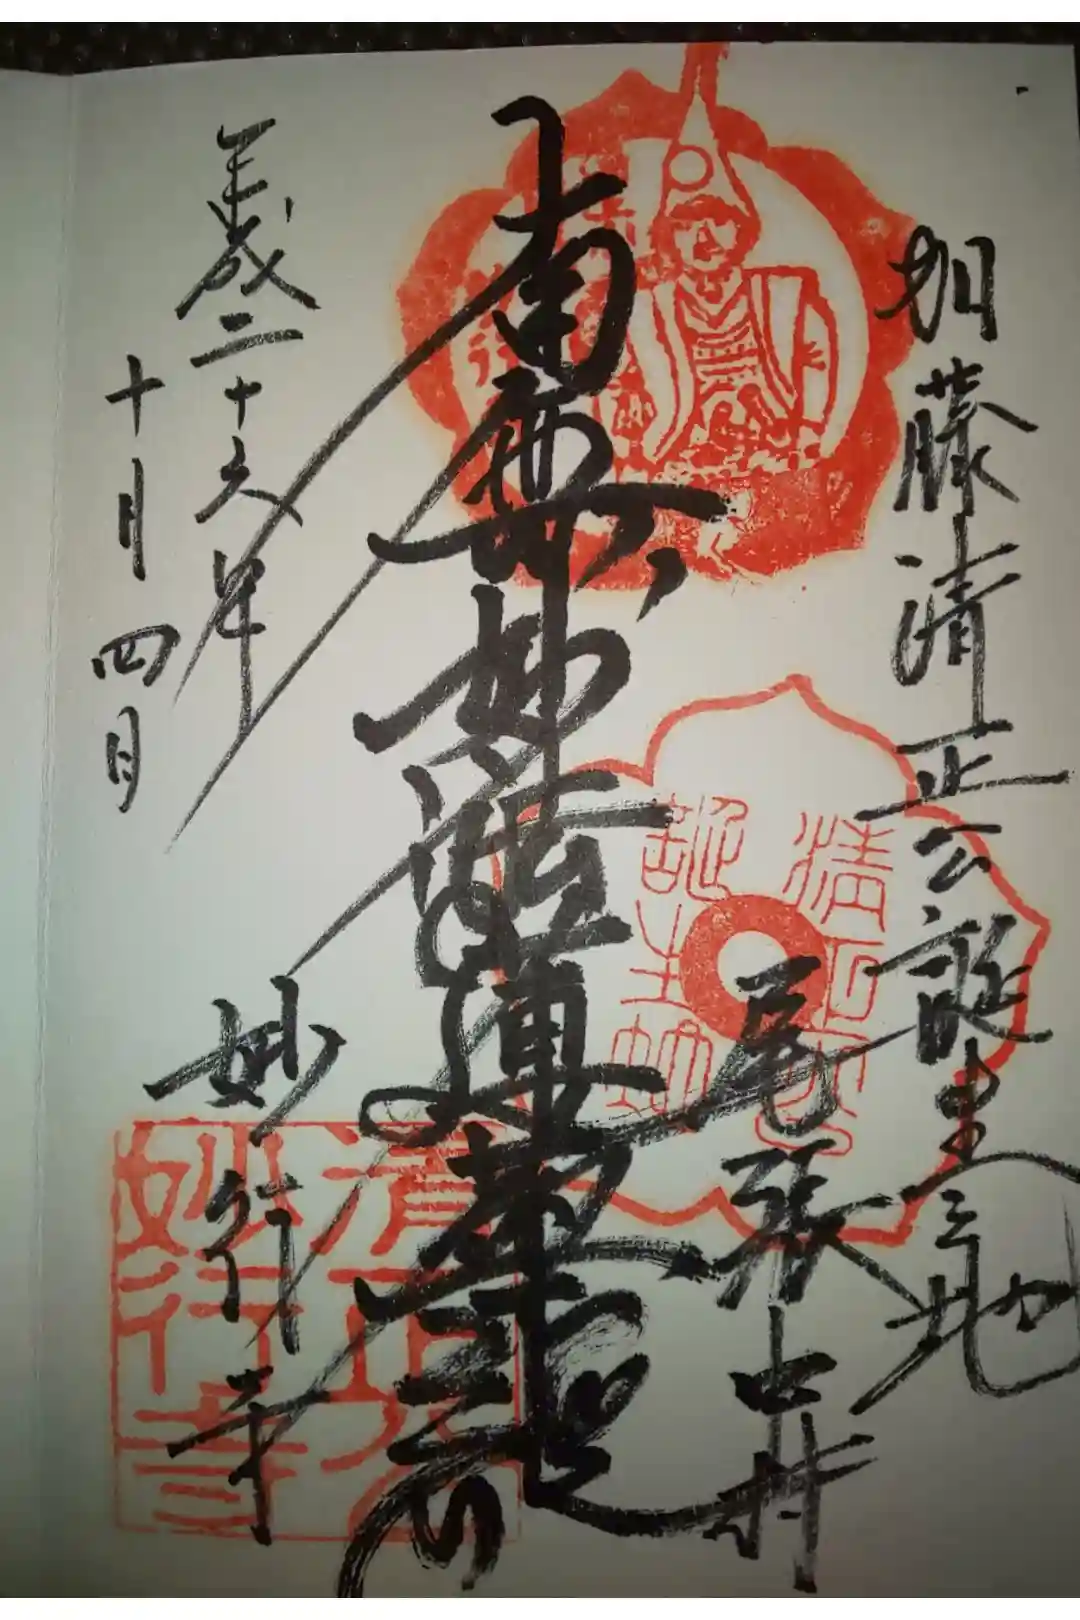 加藤清正公誕生之地
尾張中村
南無妙法蓮華経
平成二十六年
十月四日
妙行寺
清正公
誕生地
清正公
妙行寺